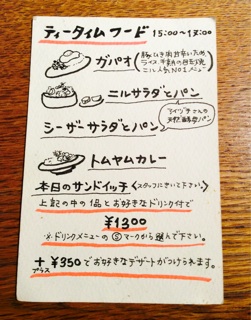 ティータイムフード 15:00〜17:00
ガパオ
豚ひき肉甘辛いため
ライス、半熟の目玉焼
ニル人気No.1メニュー
ニルサラダとパン
シーザーサラダとパン
さんの
天然酵母パン
トムヤムカレー
本日のサンドイッチ〈スタッフにきいて下さい。〉
上記の中の1品とお好きなドリンク付で
¥1300
※ドリンクメニューのⓈマークから選んで下さい。
+プラス ¥350でお好きなデザートがつけられます。